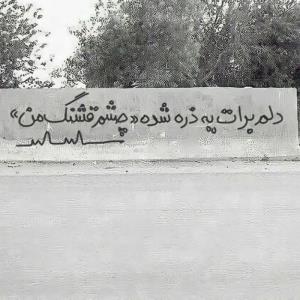 دلم برات یه ذره شده «چشم قشنگ من»